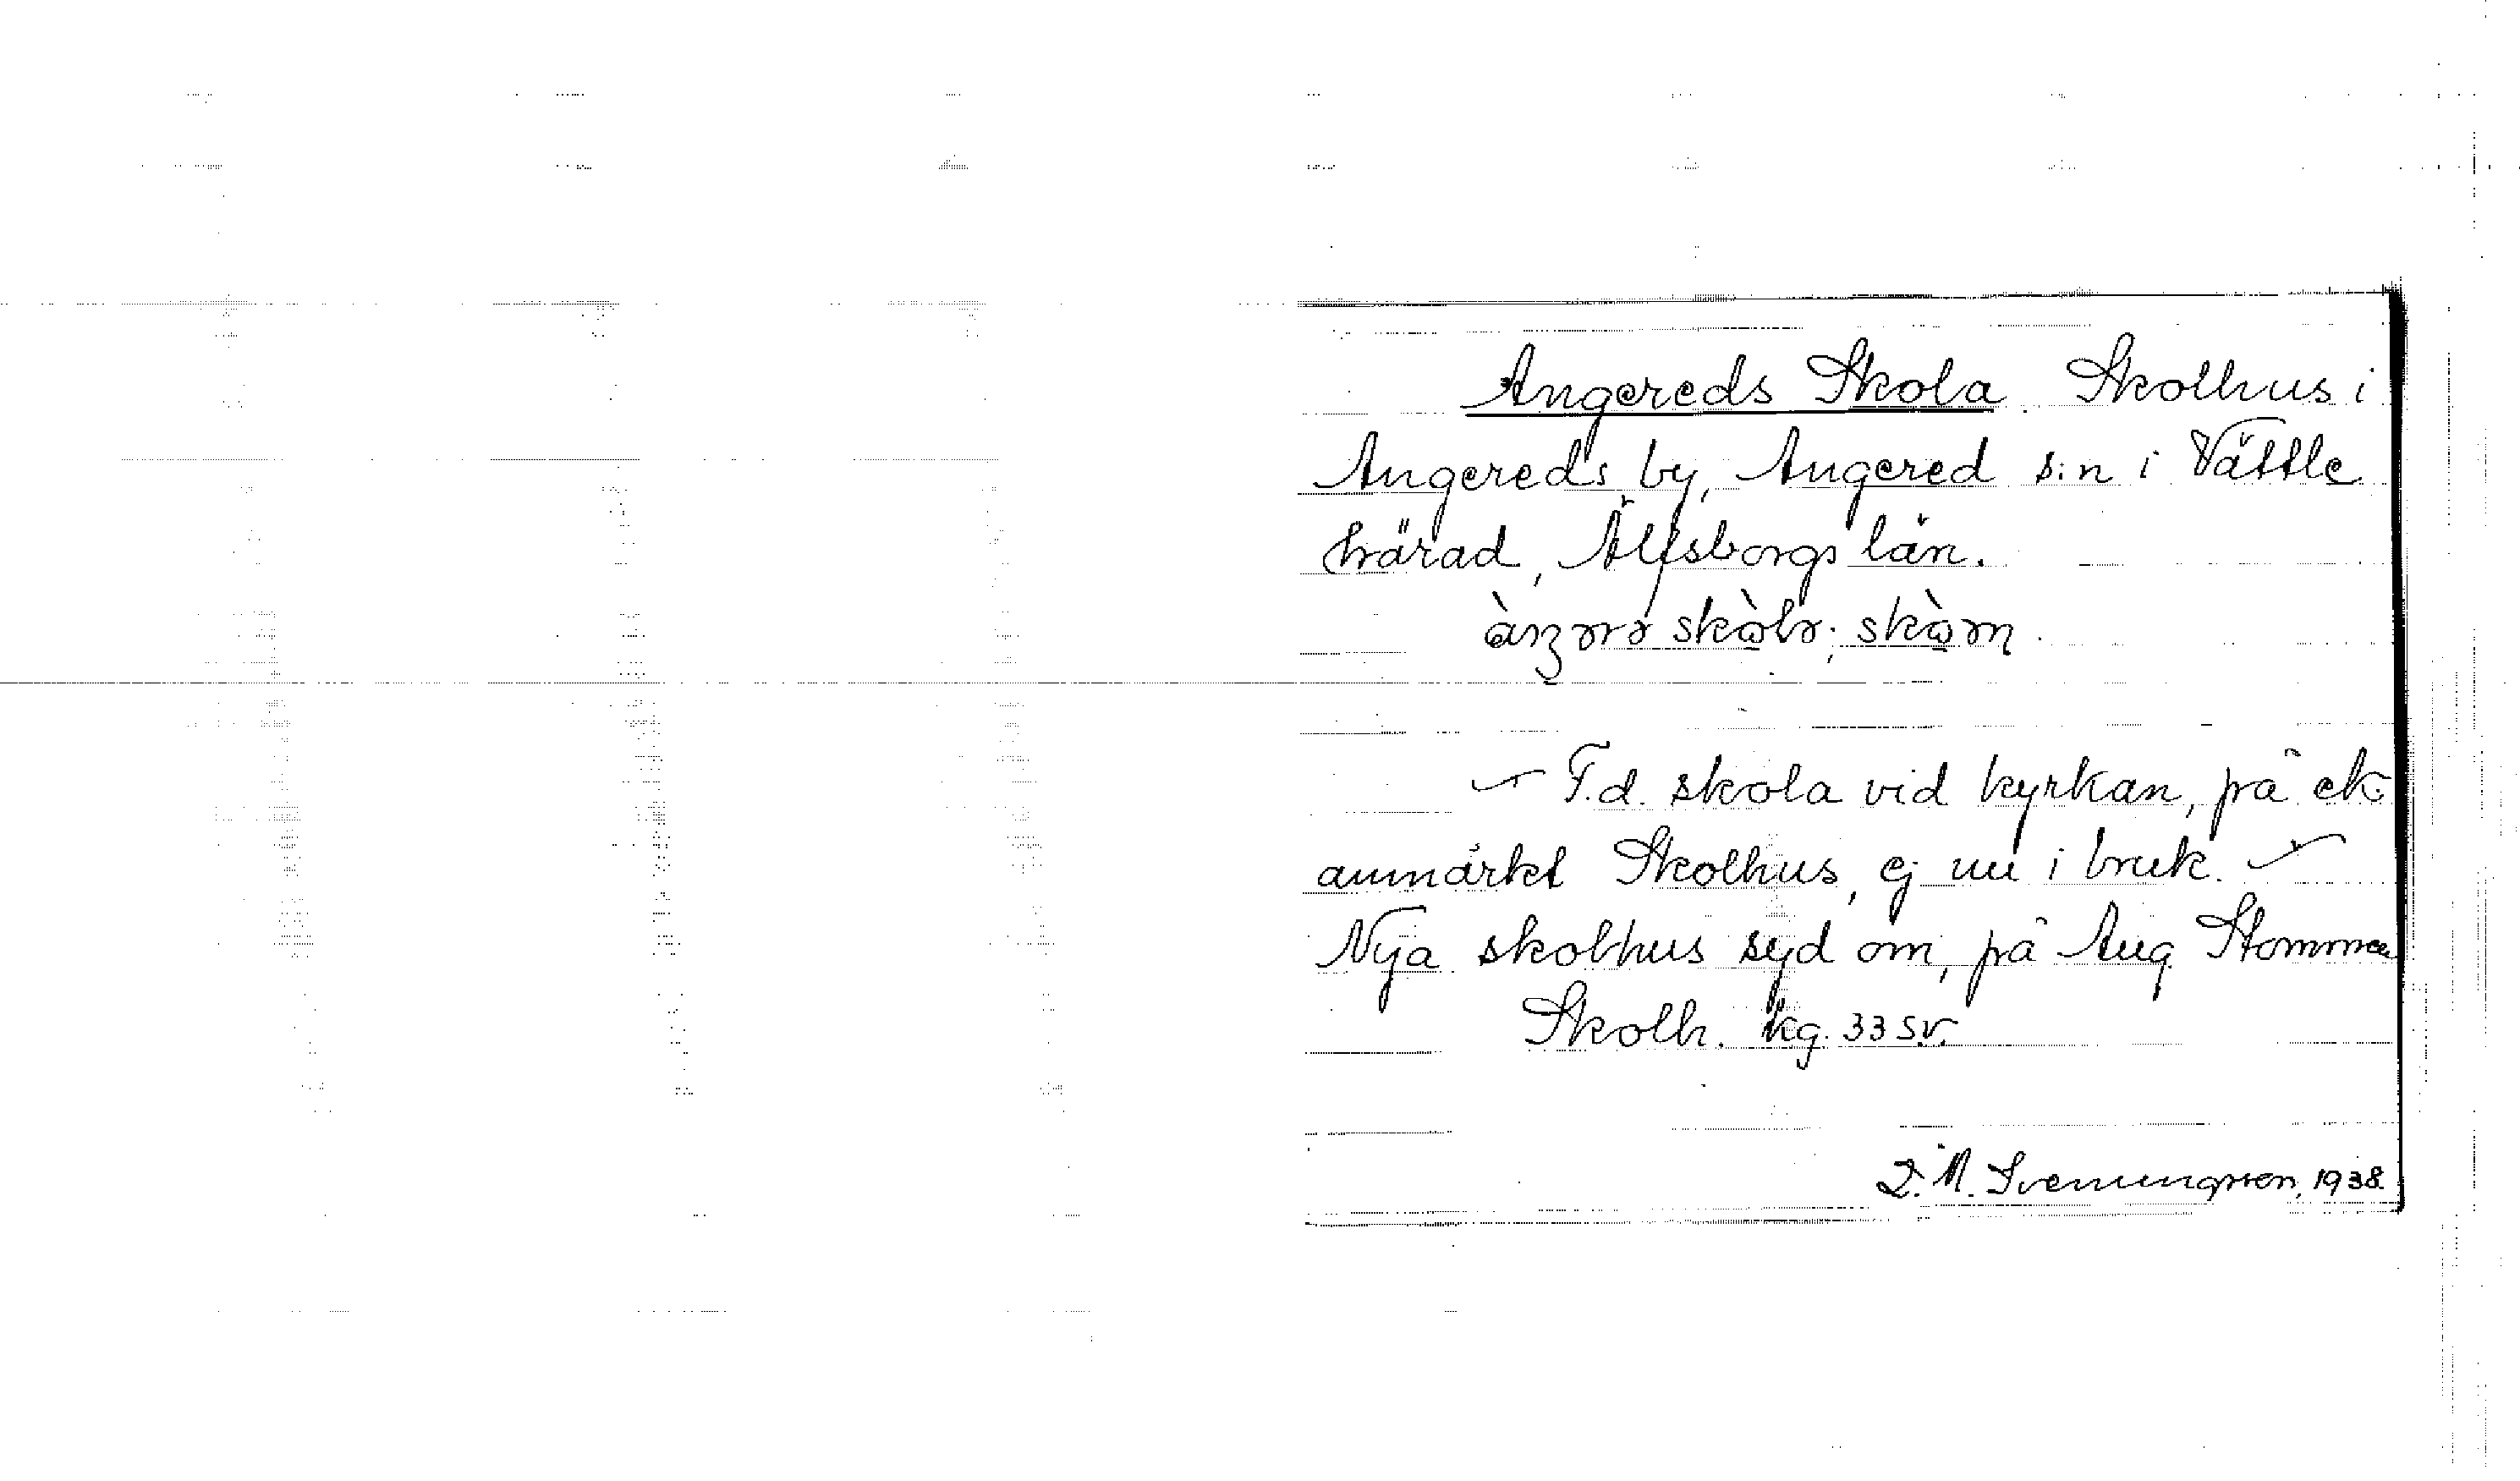 Angereds Skola. Skolhus i
Angereds by, Angered s:n i Vättle
härad, Älfsborgs län.
F.d. skola vid kyrkan, på ek.
anmärkt Skolhus, ej nu i bruk.
Nya skolhus syd om, på Ang. Stommen
Skolh. kg. 33 sv.
M. Svenungsson, 1938.